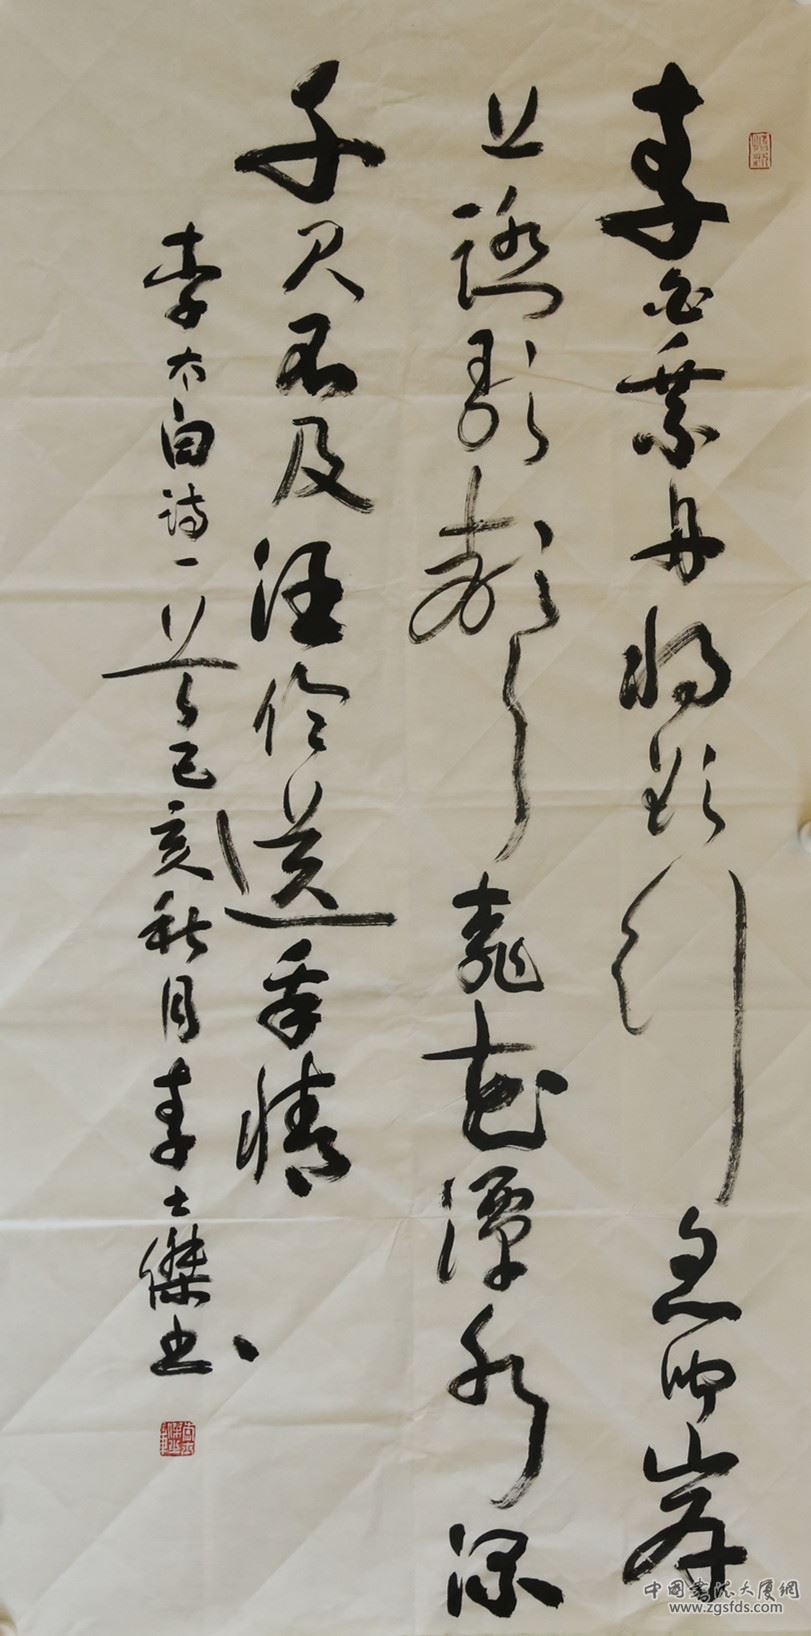 李白乘舟将欲行忽闻岸
上踏歌声桃花潭水深
千尺不及汪伦送我情
李太白诗一首己亥秋月李士傑书
中国书法大厦網
www.zgsfds.com